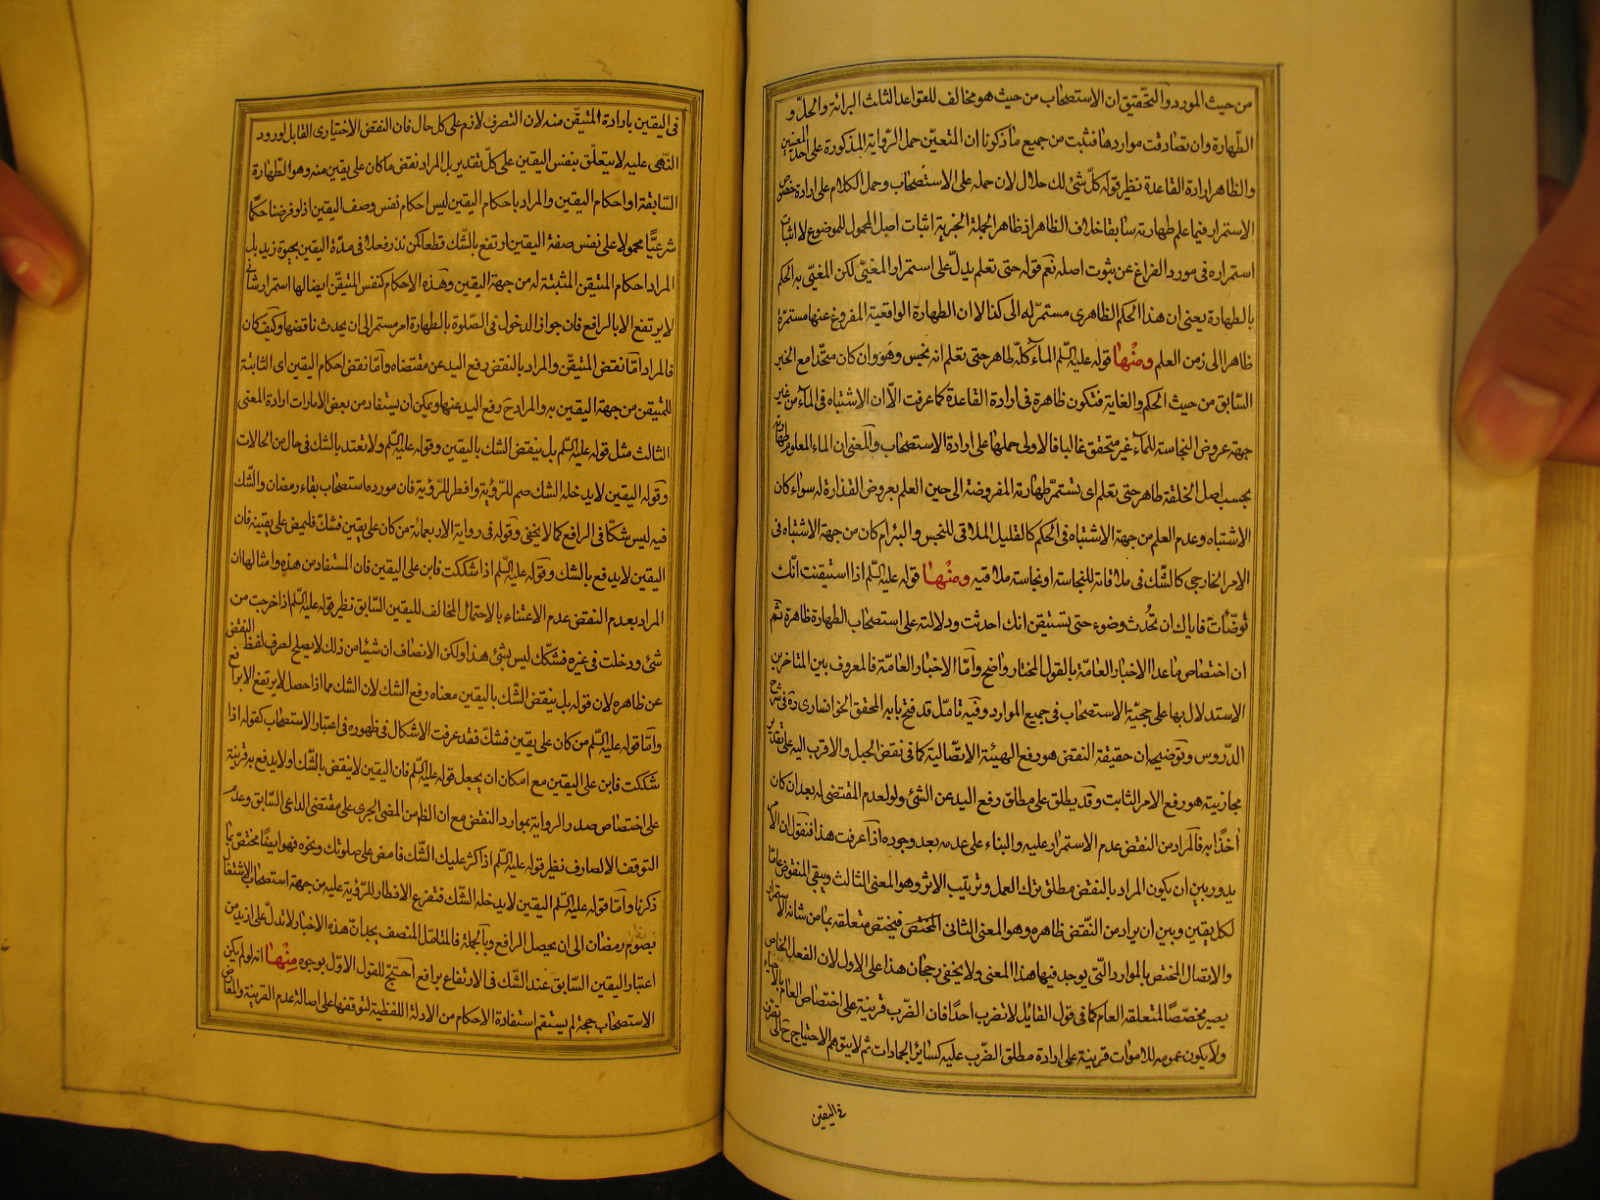 من حيث المورد والتحقيق ان الاستصحاب من حيث هو مخالف للقواعد الثالث البرائة والحل و
الطهارة وان تصادقت مواردها فثبت من جميع ما ذكرنا ان المتعين حمل الرواية المذكورة على احد المعنيين
والظاهر ارادة القاعدة نظير قوله كل شئ لك حلال لان حمله على الاستصحاب وحمل الكلام على ارادة خصوص
الاستمرار فيما علم طهارته سابقا خلاف الظاهر اذ ظاهر الجملة الخبرية اثبات اصل المحمول للموضوع لا اثبات
استمراره فى مورد الفراغ عن ثبوت اصله نعم قوله حتى تعلم يدل على استمرار المغيى لكن المغيى به الحكم
بالطهارة يعنى ان هذا الحكم الظاهرى مستمر له الى كذا لا ان الطهارة الواقعية المفروغ عنها مستمرة
ظاهرا الى زمن العلم ومنها قوله عليه السلم الماء كله طاهر حتى تعلم انه نجس وهو وان كان متحدا مع الخبر
السابق من حيث الحكم والغاية فتكون ظاهرة فى ارادة القاعدة كما عرفت الا ان الاشتباه فى الماء من غير
جهة عروض النجاسة للماء غير متحقق غالبا فالاولى حملها على ارادة الاستصحاب والمعنى ان الماء المعلوم طهارته
بحسب اصل الخلقة طاهر حتى تعلم اى تستمر طهارته المفروضة الى حين العلم بعروض القذارة له سواء كان
الاشتباه وعدم العلم من جهة الاشتباه فى الحكم كالقليل الملاقى للنجس والبئر ام كان من جهة الاشتباه فى
الامر الخارجى كالشك فى ملاقاته للنجاسة او نجاسة ملاقيه ومنها قوله عليه السلم اذا استيقنت انك
توضأت فاياك ان تحدث وضوء حتى تستيقن انك احدثت ودلالته على استصحاب الطهارة ظاهرة ثم
ان اختصاص ما عدا الاخبار العامة بالقول المختار واضح واما الاخبار العامة فالمعروف بين المتاخرين
الاستدلال بها على حجية الاستصحاب فى جميع الموارد وفيه تامل قد فتح بابه المحقق الخوانسارى ره فى شرح
الدروس وتوضيحه ان حقيقة النقض هو رفع الهيئة الاتصالية كما فى نقض الحبل والاقرب اليه على تقدير
مجازيته هو رفع الامر الثابت وقد يطلق على مطلق رفع اليد عن الشئ ولو لعدم المقتضى له بعد ان كان
اخذا به فالمراد من النقض عدم الاستمرار عليه والبناء على عدمه بعد وجوده اذا عرفت هذا فنقول ان الامر
يدور بين ان يكون المراد بالنقض مطلق ترك العمل وترتيب الاثر وهو المعنى الثالث ويبقى المنقوض عاما
لكل يقين وبين ان يراد من النقض ظاهره وهو المعنى الثانى المختص فيختص متعلقه بما من شانه الاستمرار
والاتصال المختص بالموارد التى يوجد فيها هذا المعنى ولا يخفى رجحان هذا على الاول لان الفعل الخاص
يصير مخصصا لمتعلقه العام كما فى قول القائل لا تضرب احدا فان الضرب قرينة على اختصاص العام بالاحياء
ولا يكون عمومه للاموات قرينة على ارادة مطلق الضرب عليه كسائر الجمادات ثم لا يتوهم الاحتياج ح الى تصرف
فى اليقين
فى اليقين بارادة المتيقن منه لان التصرف لازم على كل حال فان النقض الاختيارى القابل لورود
النهى عليه لا يتعلق بنفس اليقين على كل تقدير بل المراد نقض ما كان على يقين منه وهو الطهارة
السابقة او احكام اليقين والمراد باحكام اليقين ليس احكام نفس وصف اليقين اذ لو فرضنا حكما
شرعيا محمولا على نفس صفة اليقين ارتفع بالشك قطعا كمن نذر فعلا فى مدة اليقين بحيوة زيد بل
المراد احكام المتيقن المثبتة له من جهة اليقين وهذه الاحكام كنفس المتيقن ايضا لها استمرار شانى
لا يرتفع الا بالرافع فان جواز الدخول فى الصلوة بالطهارة امر مستمر الى ان يحدث ناقضها وكيف كان
فالمراد اما نقض المتيقن والمراد بالنقض رفع اليد عن مقتضاه واما نقض احكام اليقين اى الثابتة
للمتيقن من جهة اليقين به والمراد ح رفع اليد عنها ويمكن ان يستفاد من بعض الامارات ارادة المعنى
الثالث مثل قوله عليه السلم بل ينقض الشك باليقين وقوله عليه السلم ولا تعتد بالشك فى حال من الحالات
وقوله اليقين لا يدخله الشك صم للرؤية وافطر للرؤية فان مورده استصحاب بقاء رمضان والشك
فيه ليس شكا فى الرافع كما لا يخفى وقوله فى رواية الاربعمائة من كان على يقين فشك فليمض على يقينه فان
اليقين لا يدفع بالشك وقوله عليه السلم اذا شككت فابن على اليقين فان المستفاد من هذه وامثالها ان
المراد بعدم النقض عدم الاعتناء بالاحتمال المخالف لليقين السابق نظير قوله عليه السلم اذا خرجت من
شئ ودخلت فى غيره فشكك ليس بشئ هذا ولكن الانصاف ان شيئا من ذلك لا يصلح لصرف لفظ النقض
عن ظاهره لان قوله بل ينقض الشك باليقين معناه رفع الشك لان الشك مما اذا حصل لا يرتفع الا برافع
واما قوله عليه السلم من كان على يقين فشك فقد عرفت الاشكال فى ظهوره فى اعتبار الاستصحاب كقوله اذا
شككت فابن على اليقين مع امكان ان يجعل قوله عليه السلم فان اليقين لا ينقض بالشك او لا يدفع به قرينة
على اختصاص صدر الرواية بموارد النقض مع ان الظ من المضى الجرى على مقتضى الداعى السابق وعدم
التوقف الا لصارف نظير قوله عليه السلم اذا كثر عليك الشك فامض على صلوتك ونحوه فهو ايضا مختص بما
ذكرنا واما قوله عليه السلم اليقين لا يدخله الشك فتفرع الافطار للرؤية عليه من جهة استصحاب الاشتغال
بصوم رمضان الى ان يحصل الرافع وبالجملة فالمتامل المنصف يجد ان هذه الاخبار لا تدل على ازيد من
اعتبار اليقين السابق عند الشك فى الارتفاع برافع احتج للقول الاول بوجوه منها انه لو لم يكن
الاستصحاب حجة لم يستقم استفادة الاحكام من الادلة اللفظية لتوقفها على اصالة عدم القرينة والمعارض